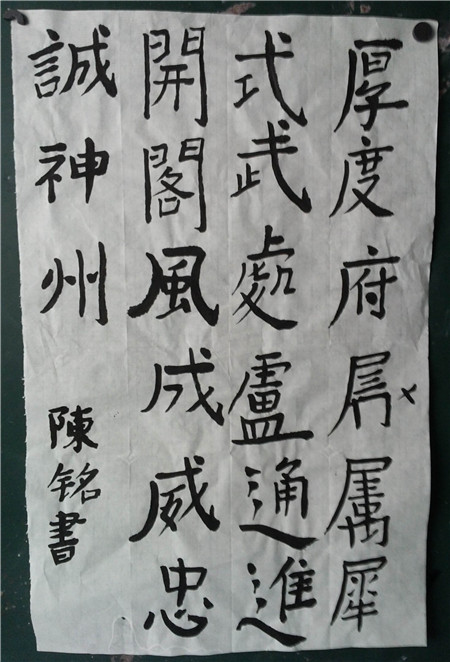 厚度府屬犀
式武處盧通進
開閣風成威忠
誠神州
陳铭書